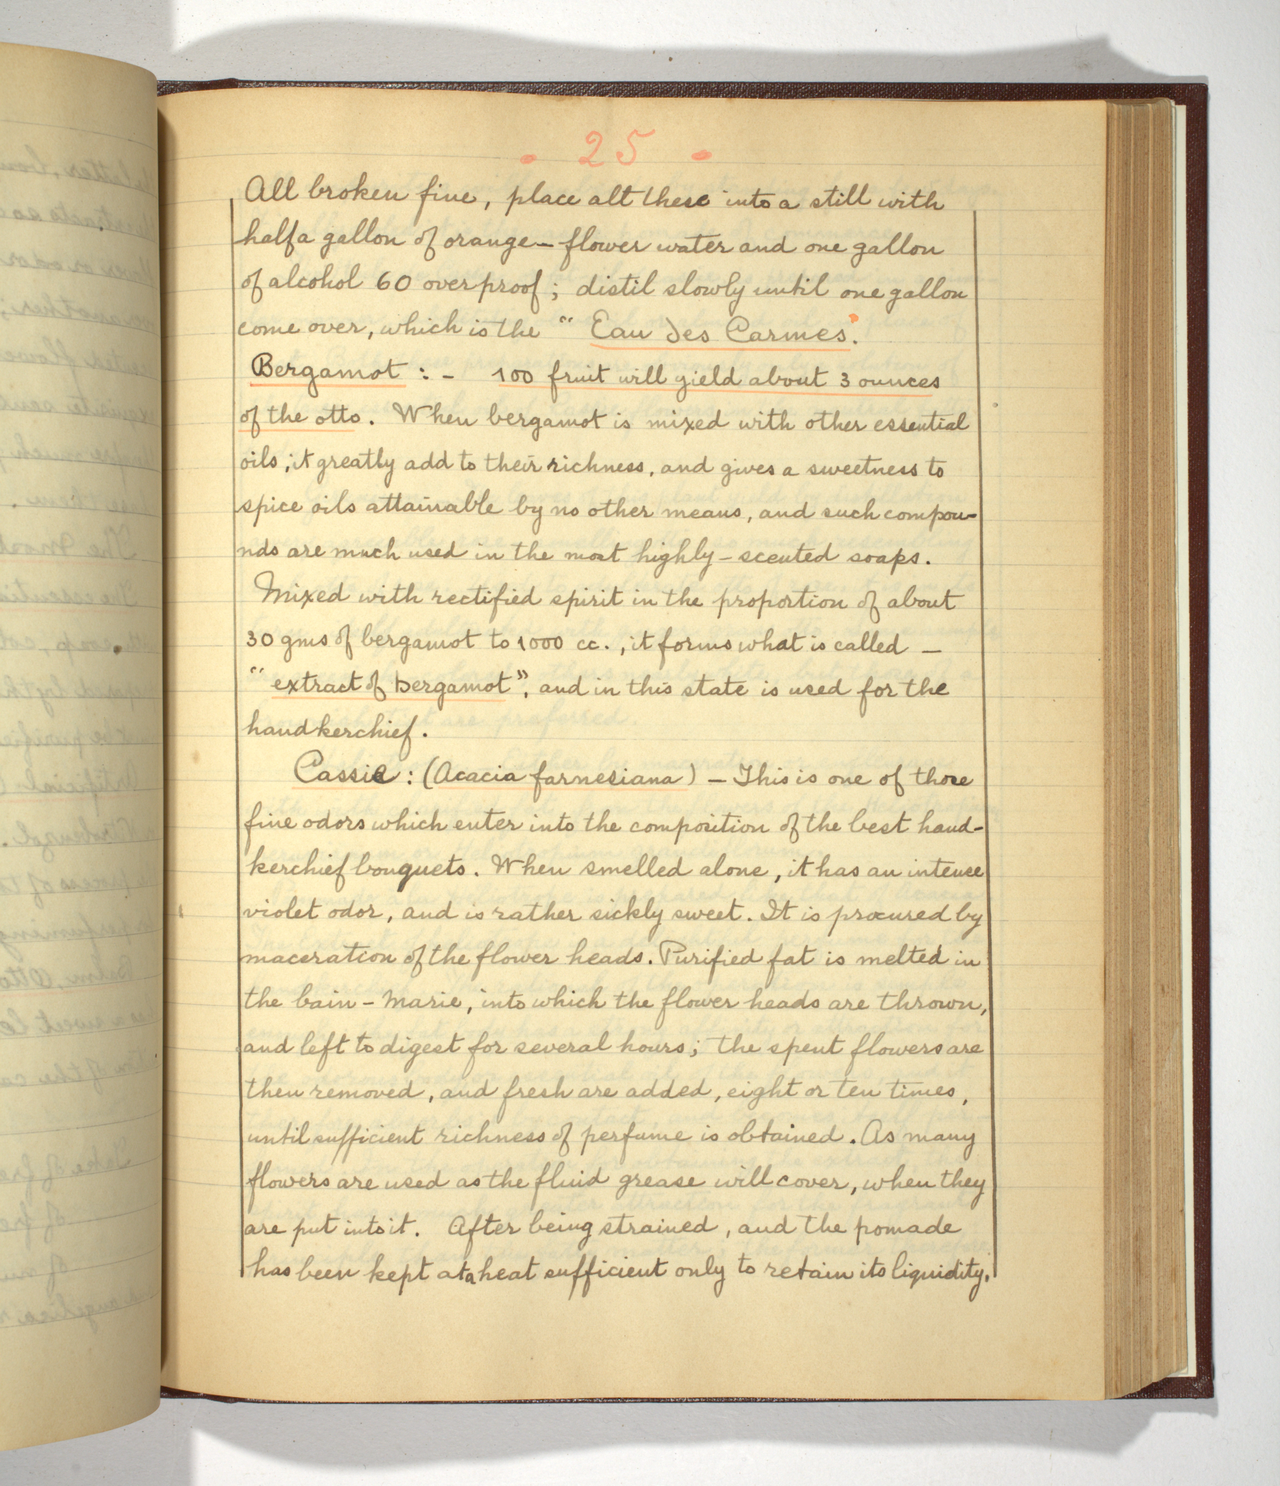 - 25 -
All broken fine, place alt these into a still with
half a gallon of orange-flower water and one gallon
of alcohol 60 overproof; distil slowly until one gallon
come over, which is the "Eau des Carmes".
Bergamot :- 100 fruit will yield about 3 ounces
of the otto. When bergamot is mixed with other essential
oils; it greatly add to their richness, and gives a sweetness to
spice oils attainable by no other means, and such compou-
nds are much used in the most highly-scented soaps.
Mixed with rectified spirit in the proportion of about
30 gms of bergamot to 1000 cc., it forms what is called -
"extract of bergamot", and in this state is used for the
handkerchief.
Cassie : (Acacia farnesiana) - This is one of those
fine odors which enter into the composition of the best hand-
kerchief bouquets. When smelled alone, it has an intense
violet odor, and is rather sickly sweet. It is procured by
maceration of the flower heads. Purified fat is melted in
the bain-Marie, into which the flower heads are thrown,
and left to digest for several hours; the spent flowers are
then removed, and fresh are added, eight or ten times,
until sufficient richness of perfume is obtained. As many
flowers are used as the fluid grease will cover, when they
are put into it. After being strained, and the pomade
has been kept at a heat sufficient only to retain its liquidity,